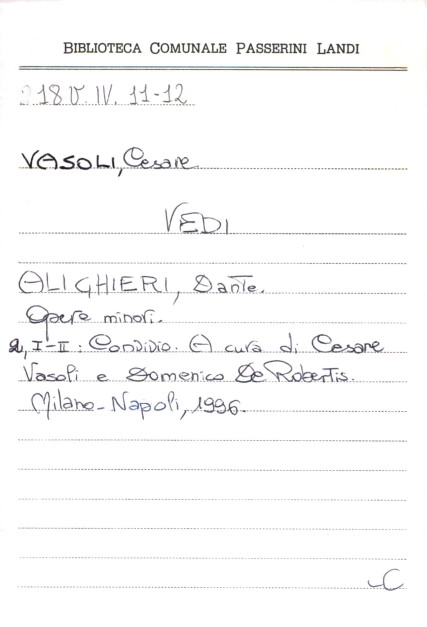 BIBLIOTECA COMUNALE PASSERINI LANDI
180. IV. 11-12
VASOLI, Cesare
VEDI
ALIGHIERI, Dante.
Opere minori.
2, I-II : Convivio. A cura di Cesare
Vasoli e Domenico De Robertis.
Milano-Napoli, 1996.